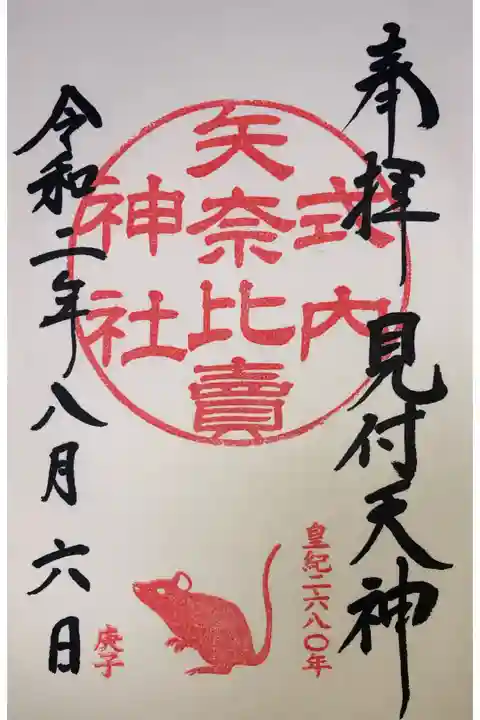 奉拝 見付天神
式内
矢奈比賣
神社
皇紀二六八〇年
庚子
令和二年八月六日